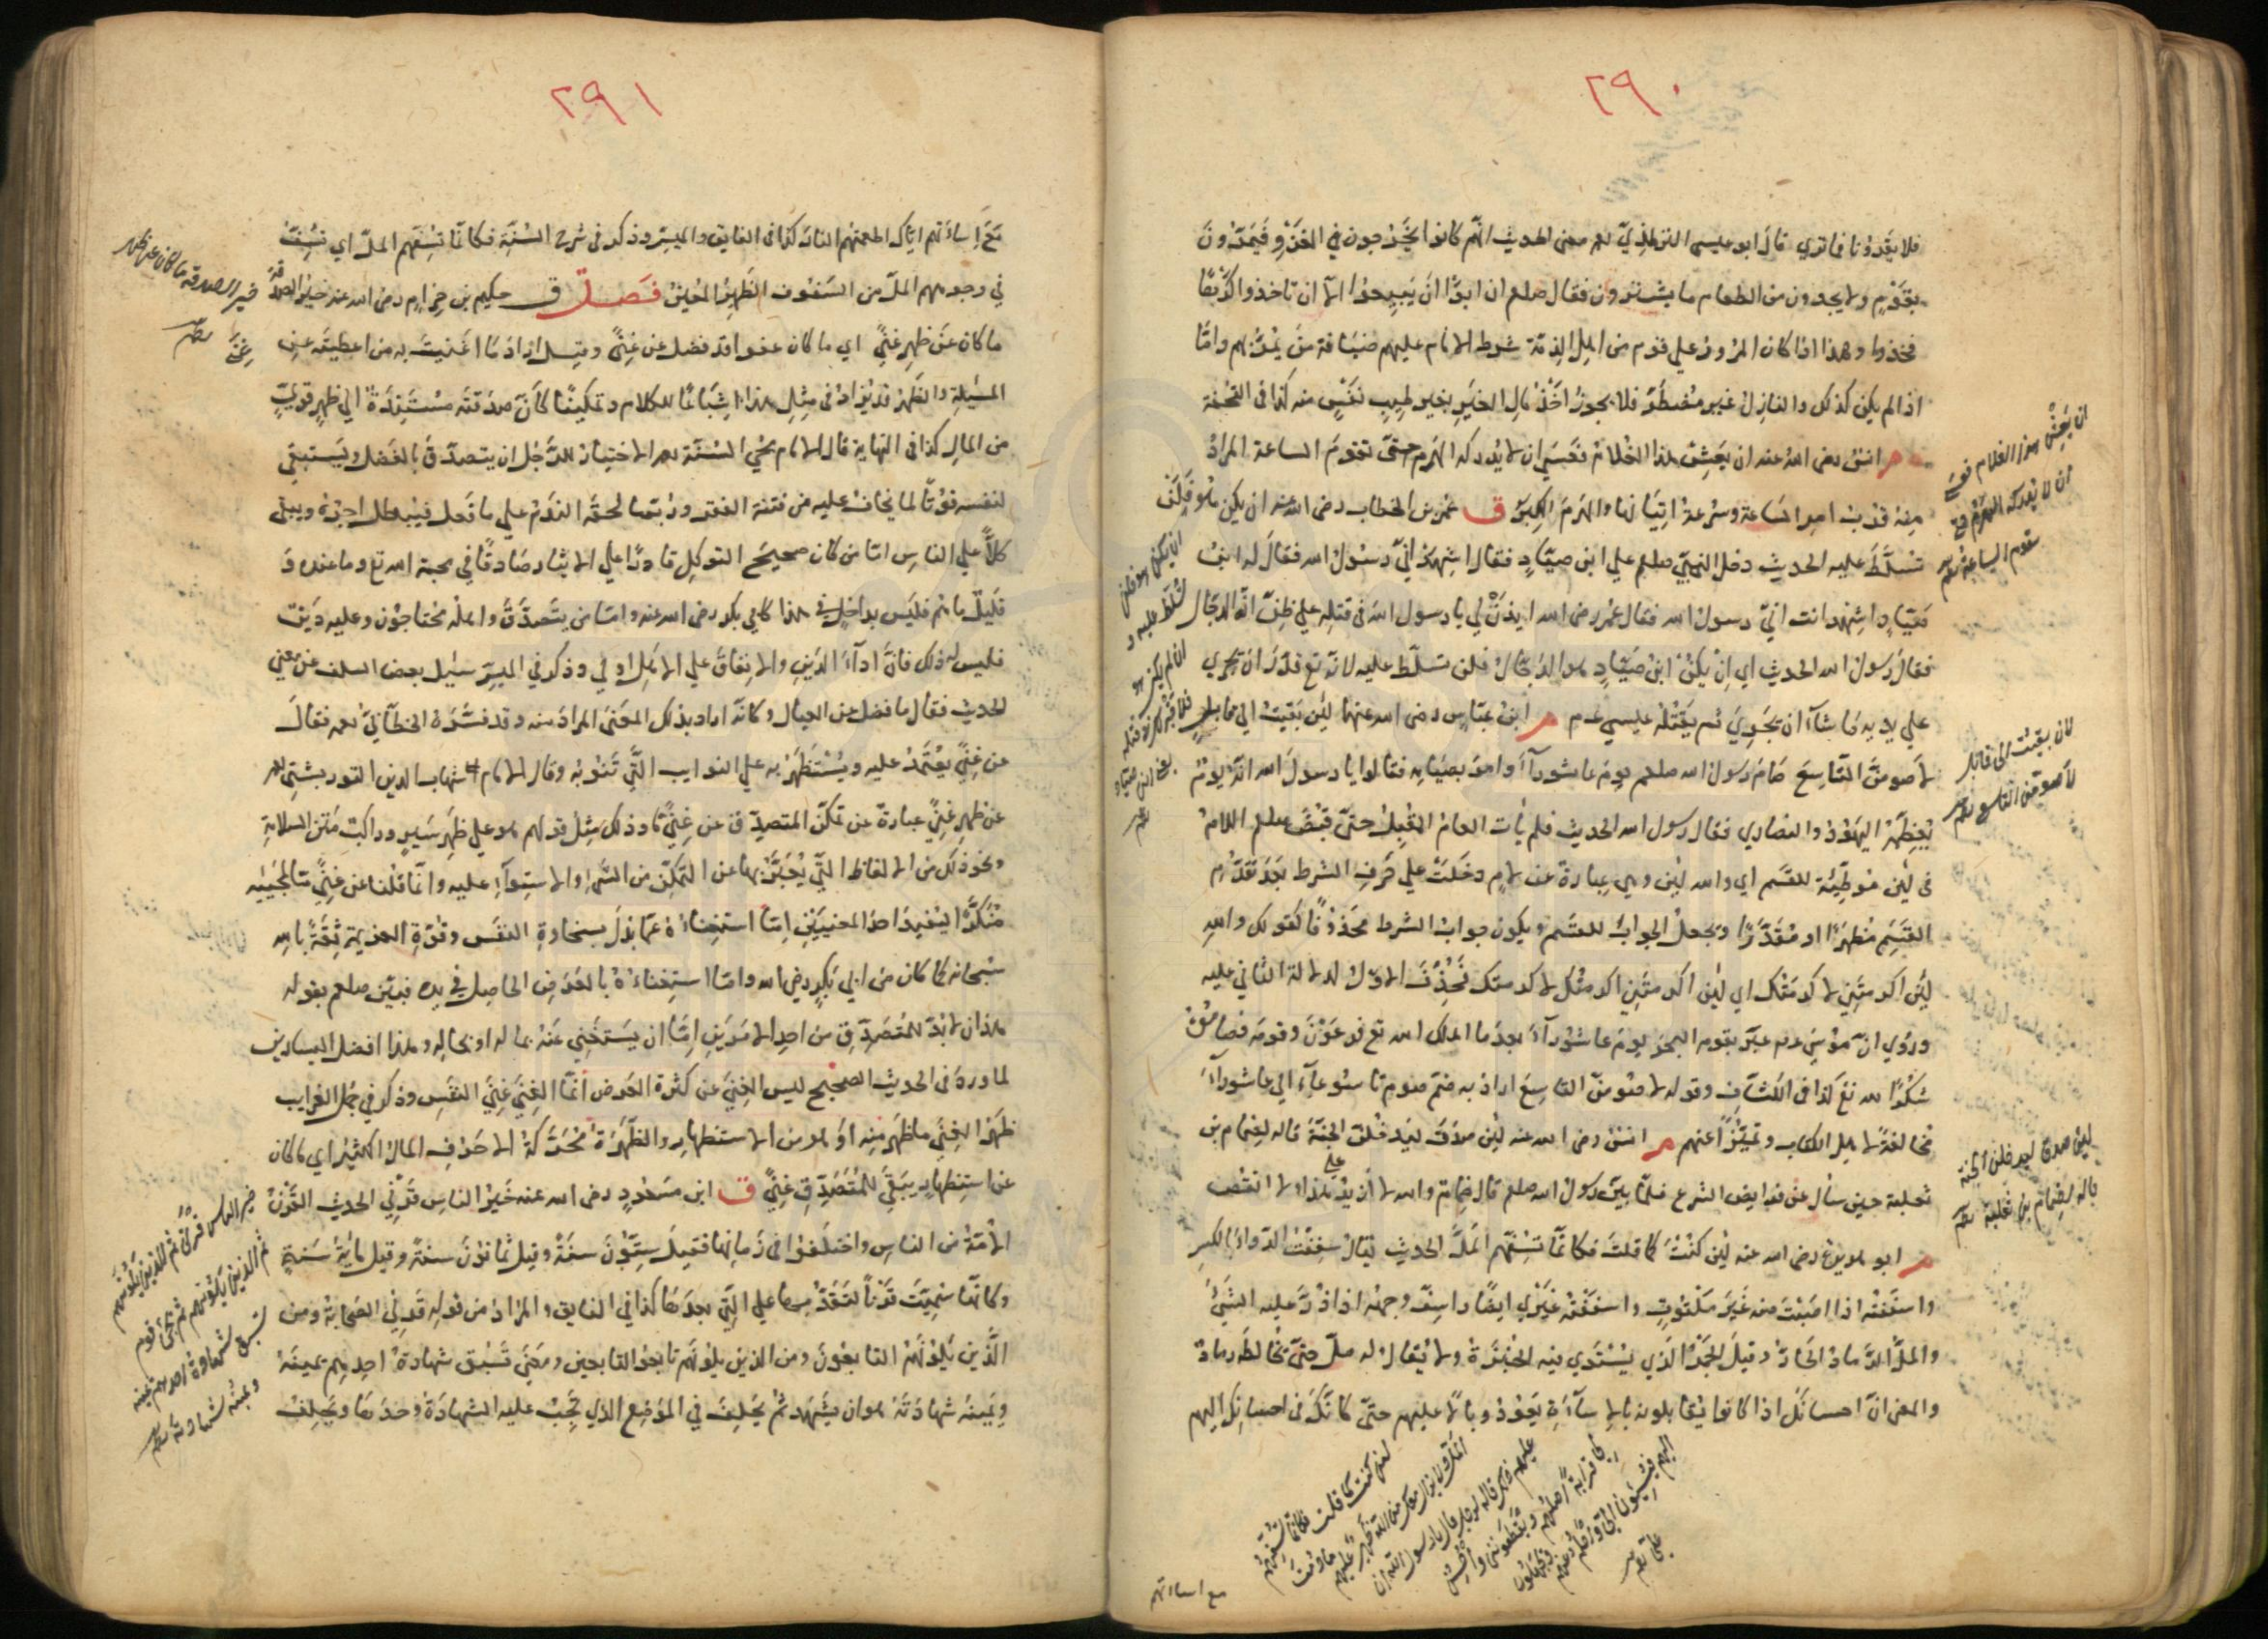 ٢٩٠
فلا يقرونا فما ترى قال ابو عيسى الترمذي رحمه معنى الحديث انهم كانوا يخرجون في الغزو فيمرون
بقوم ولا يجدون من الطعام ما يشترون فقال صلعم ان ابوا ان يبيعوا الا ان تاخذوا كرها
فخذوا وهذا اذا كان المرور على قوم من اهل الذمة شرط الامام عليهم ضيافة من يمر بهم واما
اذا لم يكن كذلك والنازل غير مضطر فلا يجوز اخذ مال الغير بغير طيب نفس منه كذا في التحفة
م انس رضى الله عنه ان يعش هذا الغلام فعسى ان لا يدركه الهرم حتى تقوم الساعة المراد
منه قرب امر الساعة وسرعة اتيانها والهرم الكبر ق عمر بن الخطاب رضى الله عنه ان يكن هو فلن
تسلط عليه الحديث دخل النبي صلعم على ابن صياد فقال اشهد اني رسول الله فقال له ابن
صياد اشهد انت اني رسول الله فقال عمر رضى الله ايذن لي يا رسول الله في قتله على ظن انه الدجال
فقال رسول الله الحديث اي ان يكن ابن صياد هو الدجال فلن تسلط عليه لانه تع قدر ان يجري
على يديه ما شاء ان يجري ثم يقتله عيسى عم م ابن عباس رضى الله عنهما لئن بقيت الى قابل
لاصومن التاسع صام رسول الله صلعم يوم عاشوراء وامر بصيامه فقالوا يا رسول الله انه يوم
يعظمه اليهود والنصارى فقال رسول الله الحديث فلم يأت العام المقبل حتى قبض صلعم اللام
في لئن موطئة للقسم اي والله لئن وهي عبارة عن لام دخلت على حرف الشرط بعد تقدم
القسم مظهرا او مقدرا وتجعل الجواب للقسم ويكون جواب الشرط محذوفا كقولك والله
لئن اكرمتني لاكرمتك اي لئن اكرمتني اكرمتك لاكرمتك فحذف الاول لدلالة الثاني عليه
وروي ان موسى عم عبر بقومه البحر يوم عاشوراء بعد ما اهلك الله تع فرعون وقومه فصامه
شكرا لله تع كذا في الكشاف وقوله لاصومن التاسع اراد به ضم صوم تاسوعاء الى عاشوراء
مخالفة لاهل الكتاب وتميزا عنهم م انس رضى الله عنه لئن صدق ليدخلن الجنة قاله لضمام بن
ثعلبة حين سأل عن فرايض الشرع فلما بين رسول الله صلعم قال ضمام والله لا ازيد على هذا ولا انقص
م ابو هريرة رضى الله عنه لئن كنت كما قلت فكانما تسفهم المل الحديث يقال سففت الدواء بالكسر
واستففته اذا اخذته غير ملتوت واسففته غيري ايضا واسف وجهه اذا ذر عليه الشيء
والمل الرماد الحار وقيل الجمر الذي يشتوى فيه الخبزة ولا يقال له مل حتى يخالطه رماد
والمعنى ان احسانك اذا كانوا يقابلونه بالاساءة يعود وبالا عليهم حتى كانك في احسانك اليهم
ان يعش هذا الغلام فعسى
ان لا يدركه الهرم حتى
تقوم الساعة
ان يكن هو فلن
تسلط عليه و
ان لم يكن هو
فلا خير لك في قتله
يعني ابن صياد
لئن بقيت الى قابل
لاصومن التاسع
لئن صدق ليدخلن الجنة
قاله لضمام بن ثعلبة
لئن كنت كما قلت فكانما تسفهم
المل ولا يزال معك من الله ظهير عليهم ما دمت
على ذلك قاله لرجل قال يا رسول الله ان
لي قرابة اصلهم ويقطعونني واحسن
اليهم ويسيئون الي واحلم عنهم ويجهلون
علي
مع اساءتهم
٢٩١
مع اساءتهم اياك اطعمتهم النار كذا في الفايق والميسر وذكر في شرح السنة فكانما تسفهم المل اي تسف
في وجوههم المل من السفوف الظهير المعين فصل ق حكيم بن حزام رضى الله عنه خير الصدقة
ما كان عن ظهر غنى اي ما كان عفوا قد فضل عن غنى وقيل اراد ما اغنيت به من اعطيته عن
المسئلة والظهر قد يزاد في مثل هذا اشباعا للكلام وتمكينا كان صدقته مستندة الى ظهر قوي
من المال كذا في النهاية قال الامام محيي السنة رحمه الاختيار للرجل ان يتصدق بالفضل ويستبقي
لنفسه قوتا لما يخاف عليه من فتنة الفقر وربما لحقه الندم على ما فعل فيبطل اجره ويبقى
كلا على الناس اما من كان صحيح التوكل قادرا على الايثار صادقا في محبة الله تع وما عنده و
قليل ما هم فليس بداخل في هذا كابي بكر رضى الله عنه واما من يتصدق واهله محتاجون وعليه دين
فليس له ذلك فان اداء الدين والانفاق على الاهل اولى وذكر في الميسر سئل بعض السلف عن معنى
الحديث فقال ما فضل عن العيال وكانه اراد بذلك المعنى المراد منه وقد فسره الخطابي رحمه فقال
عن غنى يعتمد عليه ويستظهر به على النوايب التي تنوبه وقال الامام شهاب الدين التوربشتي رحمه
عن ظهر غنى عبارة عن تمكن المتصدق عن غنى ما وذلك مثل قولهم هو على ظهر سير وراكب متن السلامة
ونحو ذلك من الالفاظ التي يعبر بها عن التمكن من الشيء والاستواء عليه وانما قلنا عن غنى ما لمجيئه
منكرا ليفيد احد المعنيين اما استغناؤه عما بذل بسخاوة النفس وقوة العزيمة ثقة بالله
سبحانه كما كان من ابي بكر رضى الله واما استغناؤه بالعرض الحاصل في يده فبين صلعم بقوله
هذا ان لا بد للمتصدق من احد الامرين اما ان يستغني عنه بماله او بحاله وهذا افضل اليسارين
لما ورد في الحديث الصحيح ليس الغنى عن كثرة العرض انما الغنى غنى النفس وذكر في جمل الغرايب
ظهر الغنى ما ظهر منه او هو من الاستظهار والظهرة محركة الاحرف المال الكثير اي ما كان
عن استظهار يبقى للمتصدق غنى ق ابن مسعود رضى الله عنه خير الناس قرني الحديث القرن
الامة من الناس واختلفوا في زمانها فقيل ستون سنة وقيل ثمانون سنة وقيل مائة سنة
وكانها سميت قرنا لتقدمها على التي بعدها كذا في الفايق والمراد من قوله قرني الصحابة ومن
الذين يلونهم التابعون ومن الذين يلونهم تابعو التابعين ومعنى تسبق شهادة احدهم يمينه
ويمينه شهادته هو ان يشهد ثم يحلف في الموضع الذي يجب عليه الشهادة وحدها ويحلف
خير الصدقة ما كان عن ظهر
غنى
خير الناس قرني ثم الذين يلونهم
ثم الذين يلونهم ثم يجيء قوم
تسبق شهادة احدهم يمينه
ويمينه شهادته